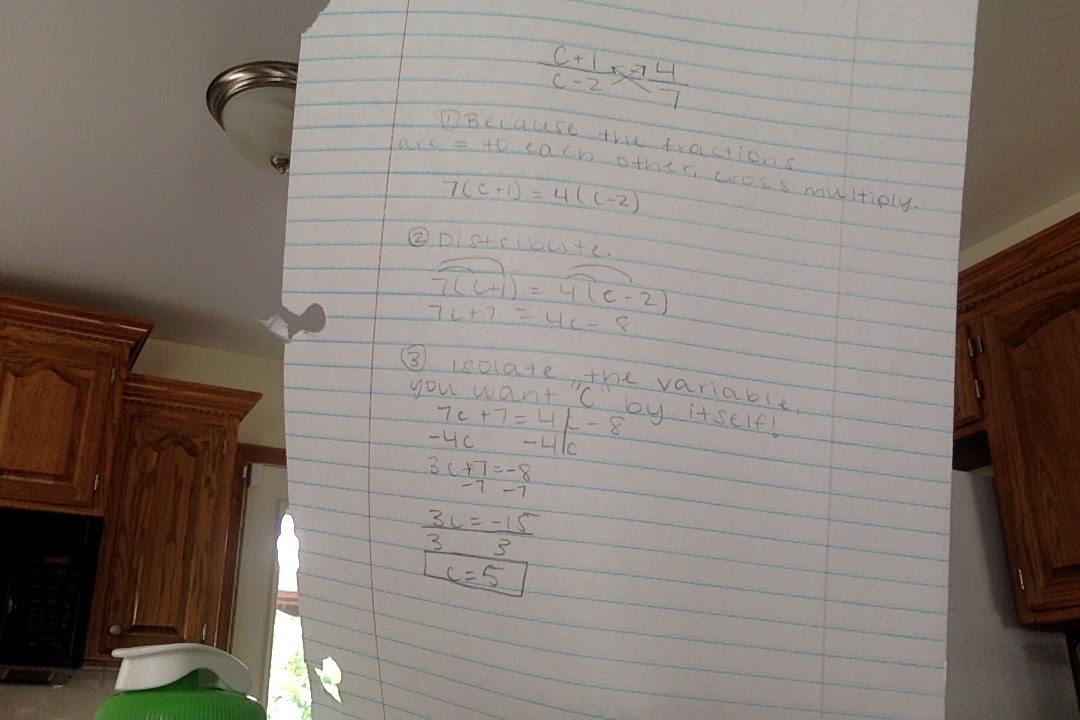 C+1 4
c-2 7
① Because the fractions
are = to each other, cross multiply.
7(c+1) = 4(c-2)
② Distribute.
7(c+1) = 4(c-2)
7c+7 = 4c-8
③ isolate the variable,
you want "C" by itself!
7c+7=4c-8
-4c -4c
3c+7=-8
-7 -7
3c=-15
3 3
c=5